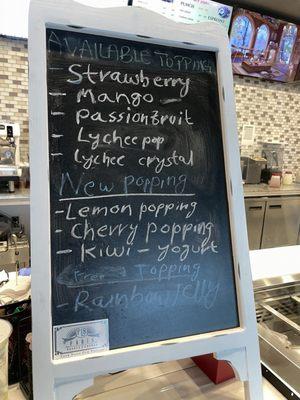 AVAILABLE TOPPING
- Strawberry
- Mango
- passionfruit
- Lychee pop
- Lychee crystal
New popping
- Lemon popping
- Cherry popping
- Kiwi - yogurt
Free Topping
- Rainbow Jelly
PARIS